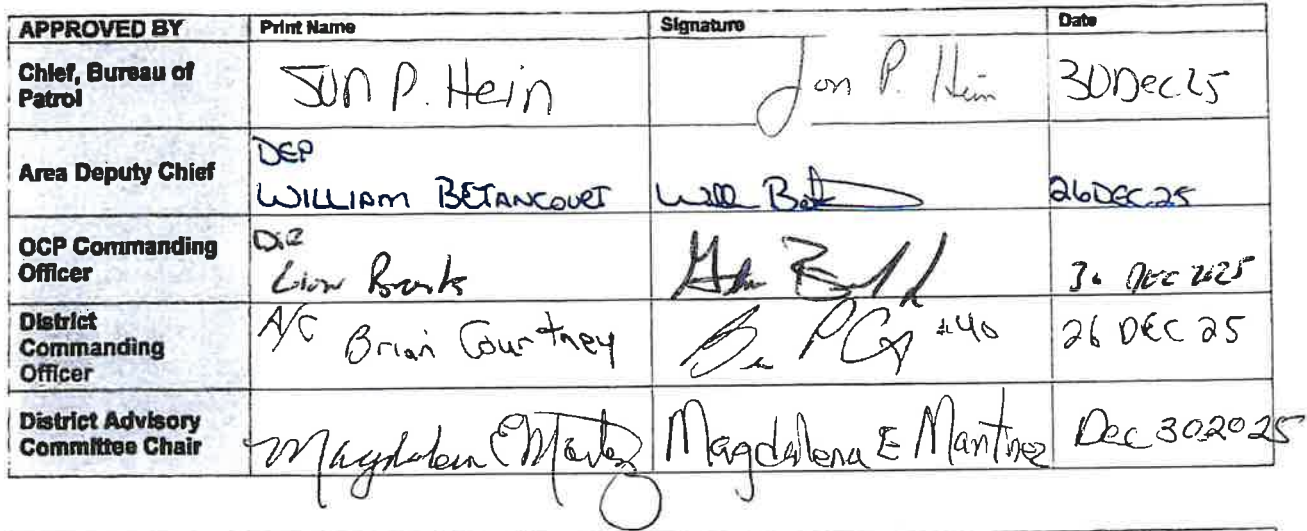 APPROVED BY Print Name Signature Date
Chief, Bureau of Patrol JON P. Hein Jon P. Hein 30Dec25
Area Deputy Chief DEP WILLIAM BETANCOURT Will 26DEC25
OCP Commanding Officer 30 DEC 2025
District Commanding Officer A/C Brian Courtney #40 26 DEC 25
District Advisory Committee Chair Magdalena E Martinez Dec 30 2025